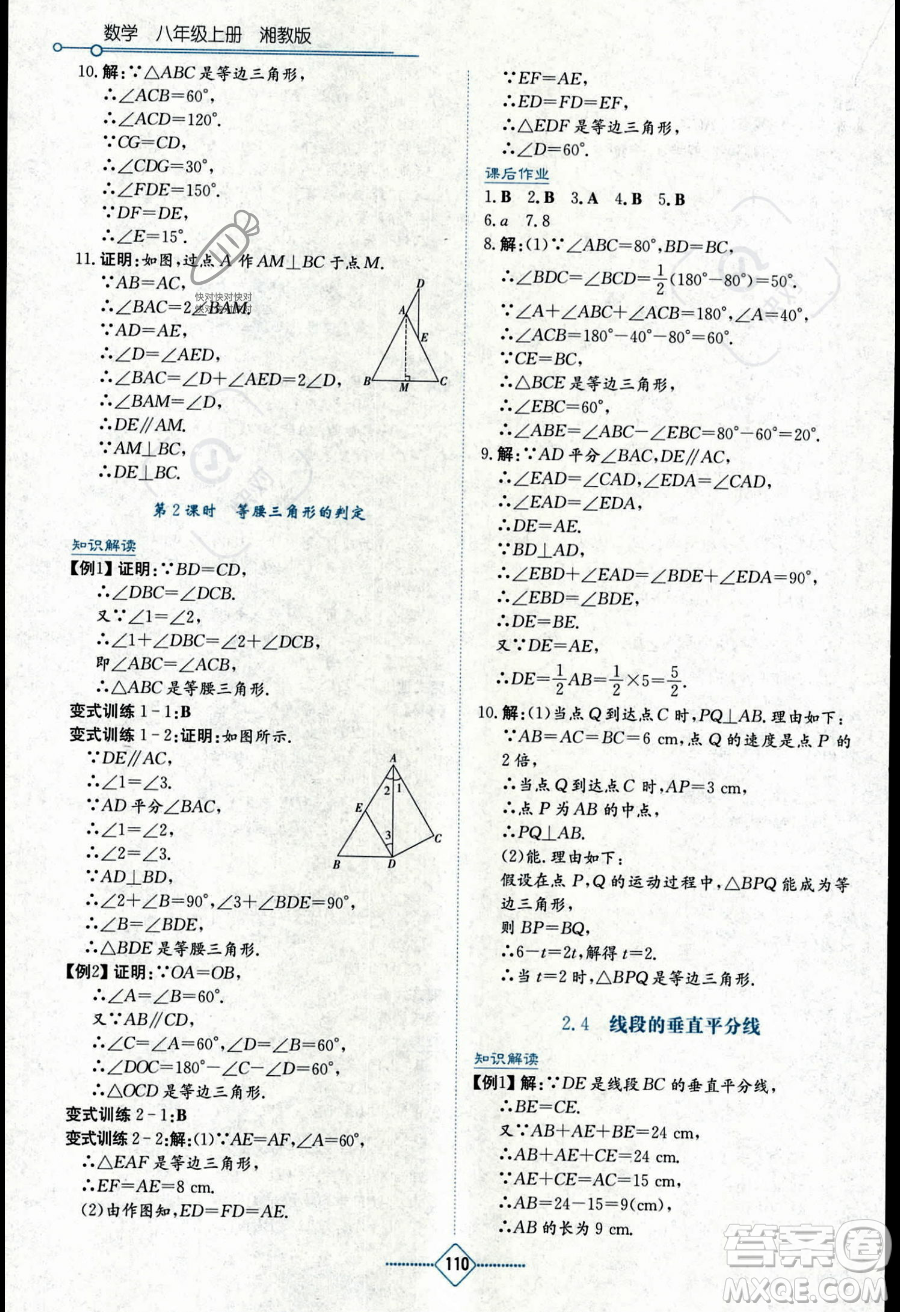 数学 八年级上册 湘教版
10. 解:∵△ABC 是等边三角形,
∴∠ACB=60°,
∴∠ACD=120°.
∵CG=CD,
∴∠CDG=30°,
∴∠FDE=150°.
∵DF=DE,
∴∠E=15°.
11. 证明:如图,过点 A 作 AM⊥BC 于点 M.
∵AB=AC,
∴∠BAC=2∠BAM.
∵AD=AE,
∴∠D=∠AED.
∴∠BAC=∠D+∠AED=2∠D,
∴∠BAM=∠D,
∴DE∥AM.
∵AM⊥BC,
∴DE⊥BC.
D
A
E
B
M
C
快对快对快对
快对快对快对
第 2 课时 等腰三角形的判定
知识解读
【例1】证明:∵BD=CD,
∴∠DBC=∠DCB.
又∵∠1=∠2,
∴∠1+∠DBC=∠2+∠DCB,
即∠ABC=∠ACB,
∴△ABC 是等腰三角形.
变式训练 1-1:B
变式训练 1-2:证明:如图所示.
∵DE∥AC,
∴∠1=∠3.
∵AD 平分∠BAC,
∴∠1=∠2,
∴∠2=∠3.
∵AD⊥BD,
∴∠2+∠B=90°,∠3+∠BDE=90°,
∴∠B=∠BDE,
∴△BDE 是等腰三角形.
A
2
1
E
3
C
B
D
【例2】证明:∵OA=OB,
∴∠A=∠B=60°.
又∵AB∥CD,
∴∠C=∠A=60°,∠D=∠B=60°,
∴∠DOC=180°-∠C-∠D=60°,
∴△OCD 是等边三角形.
变式训练 2-1:B
变式训练 2-2:解:(1)∵AE=AF,∠A=60°,
∴△EAF 是等边三角形,
∴EF=AE=8 cm.
(2)由作图知,ED=FD=AE.
∵EF=AE,
∴ED=FD=EF,
∴△EDF 是等边三角形,
∴∠D=60°.
课后作业
1. B 2. B 3. A 4. B 5. B
6. a 7. 8
8. 解:(1)∵∠ABC=80°,BD=BC,
∴∠BDC=∠BCD=1/2(180°-80°)=50°.
∵∠A+∠ABC+∠ACB=180°,∠A=40°,
∴∠ACB=180°-40°-80°=60°.
∵CE=BC,
∴△BCE 是等边三角形,
∴∠EBC=60°,
∴∠ABE=∠ABC-∠EBC=80°-60°=20°.
9. 解:∵AD 平分∠BAC,DE∥AC,
∴∠EAD=∠CAD,∠EDA=∠CAD,
∴∠EAD=∠EDA,
∴DE=AE.
∵BD⊥AD,
∴∠EBD+∠EAD=∠BDE+∠EDA=90°,
∴∠EBD=∠BDE,
∴DE=BE.
又∵DE=AE,
∴DE=1/2AB=1/2×5=5/2.
10. 解:(1)当点 Q 到达点 C 时,PQ⊥AB. 理由如下:
∵AB=AC=BC=6 cm,点 Q 的速度是点 P 的
2 倍,
∴当点 Q 到达点 C 时,AP=3 cm,
∴点 P 为 AB 的中点,
∴PQ⊥AB.
(2)能.理由如下:
假设在点 P,Q 的运动过程中,△BPQ 能成为等
腰三角形,
则 BP=BQ,
∴6-t=2t,解得 t=2.
∴当 t=2 时,△BPQ 是等边三角形.
2.4 线段的垂直平分线
知识解读
【例1】解:∵DE 是线段 BC 的垂直平分线,
∴BE=CE.
又∵AB+AE+BE=24 cm,
∴AB+AE+CE=24 cm,
∴AB+AC=24 cm,
∴AB=24-15=9(cm),
∴AB 的长为 9 cm.
110
答案圈
MXQE.COM